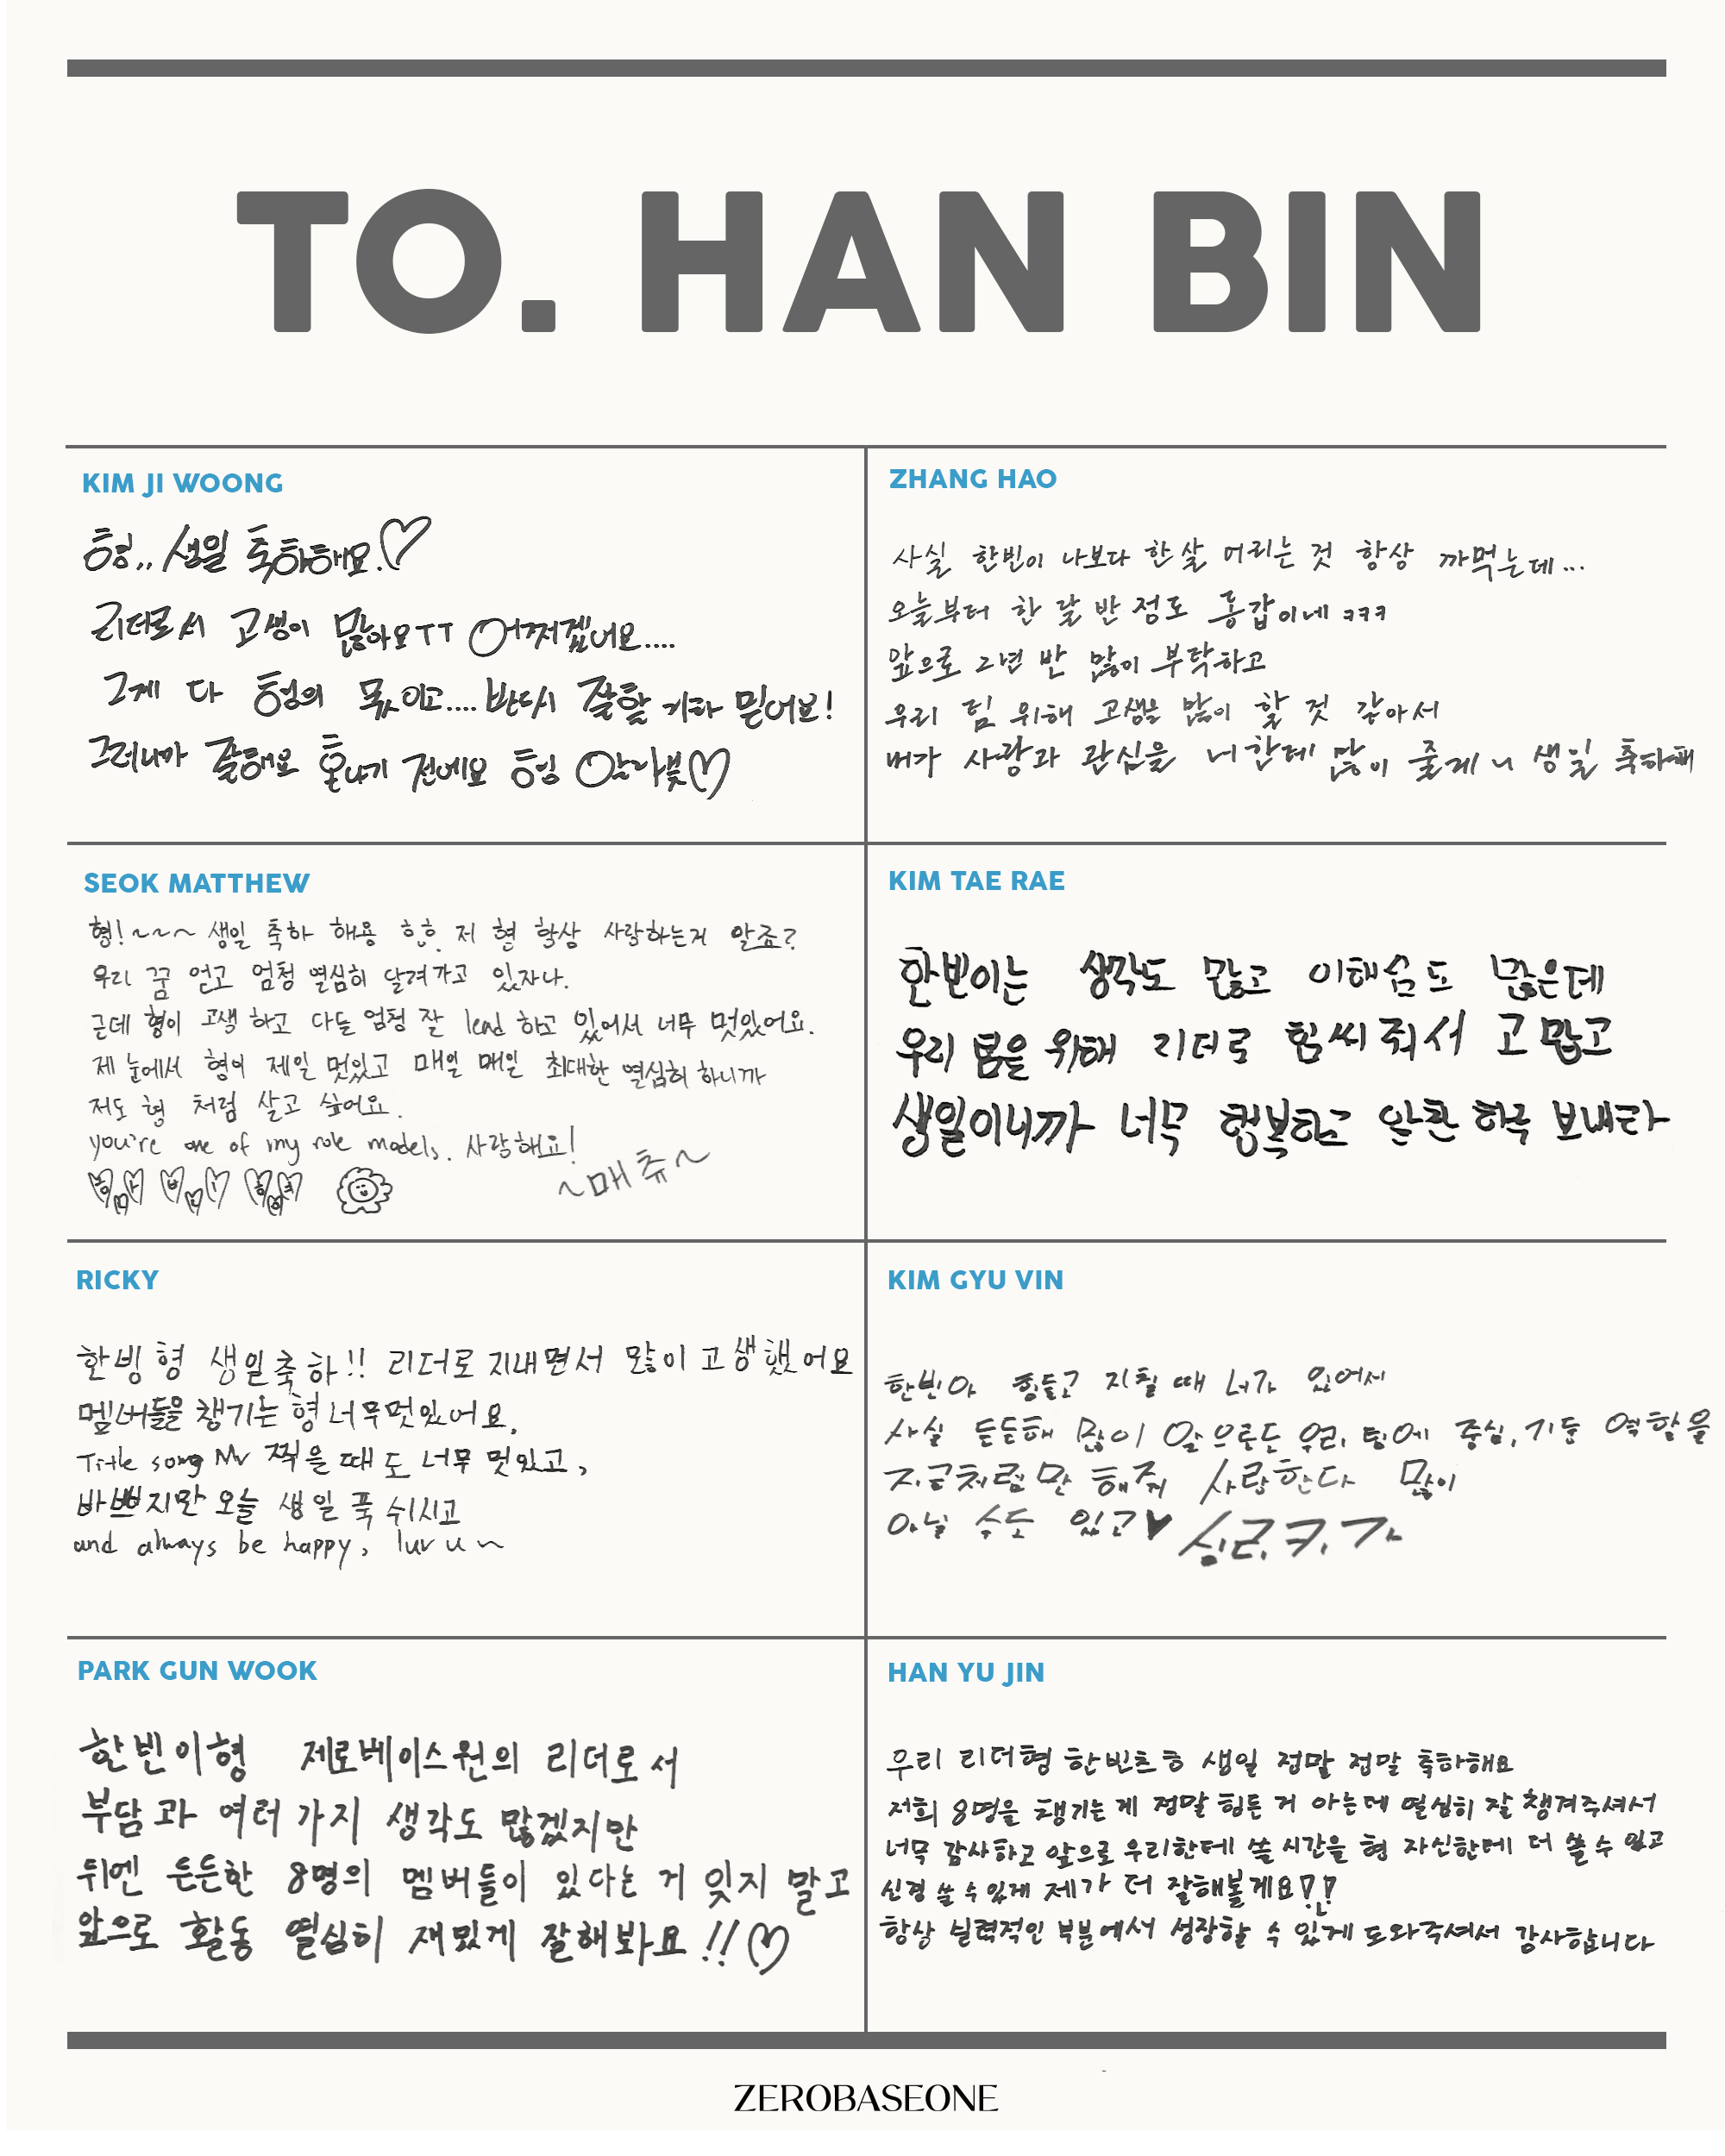 TO. HAN BIN
KIM JI WOONG
형,, 생일 축하해요.♡
리더로서 고생이 많아요ㅜㅜ 어쩌겠어요....
그게 다 형의 몫이고.... 반드시 잘할 거라 믿어요!
그러니까 잘해요 혼나기 전에요 형 알라븊♡
ZHANG HAO
사실 한빈이 나보다 한 살 어리는 것 항상 까먹는데...
오늘부터 한 달 반 정도 동갑이네 ㅋㅋㅋ
앞으로 2년 반 많이 부탁하고
우리 팀 위해 고생을 많이 할 것 같아서
내가 사랑과 관심을 너한테 많이 줄게 니 생일 축하해
SEOK MATTHEW
형!~~~ 생일 축하 해용 흐흐. 저 형 항상 사랑하는거 알죠?
우리 꿈 얻고 엄청 열심히 달려가고 있자나.
근데 형이 고생 하고 다들 엄청 잘 lead 하고 있어서 너무 멋있어요.
제 눈에서 형이 제일 멋있고 매일 매일 최대한 열심히 하니까
저도 형 처럼 살고 싶어요.
you're one of my role models. 사랑해요!
성한빈 형
~매츄~
KIM TAE RAE
한빈이는 생각도 많고 이해심도 많은데
우리 봄을 위해 리더로 힘써줘서 고맙고
생일이니까 너무 행복하고 알찬 하루 보내라
RICKY
한빙 형 생일축하!! 리더로 지내면서 많이 고생했어요
멤버들을 챙기는 형 너무 멋있어요.
Title song MV 찍을 때도 너무 멋있고,
바쁘지만 오늘 생일 푹 쉬시고
and always be happy, luv u ~
KIM GYU VIN
한빈아 힘들고 지칠 때 너가 있어서
사실 든든해 많이 앞으로도 우리 팀에 중심, 기둥 역할을
지금처럼만 해줘 사랑한다 많이
아닐 수도 있고♥ 싱.근.큐.가
PARK GUN WOOK
한빈이형 제로베이스원의 리더로서
부담과 여러 가지 생각도 많겠지만
뒤엔 든든한 8명의 멤버들이 있다는 거 잊지 말고
앞으로 활동 열심히 재밌게 잘해봐요!!♡
HAN YU JIN
우리 리더형 한빈츠흐 생일 정말 정말 축하해요
저희 8명을 챙기는 게 정말 힘든 거 아는데 열심히 잘 챙겨주셔서
너무 감사하고 앞으로 우리한테 쓸 시간을 형 자신한테 더 쓸 수 있고
신경 쓸 수 있게 제가 더 잘해볼게요!!
항상 실력적인 부분에서 성장할 수 있게 도와주셔서 감사합니다
ZEROBASEONE